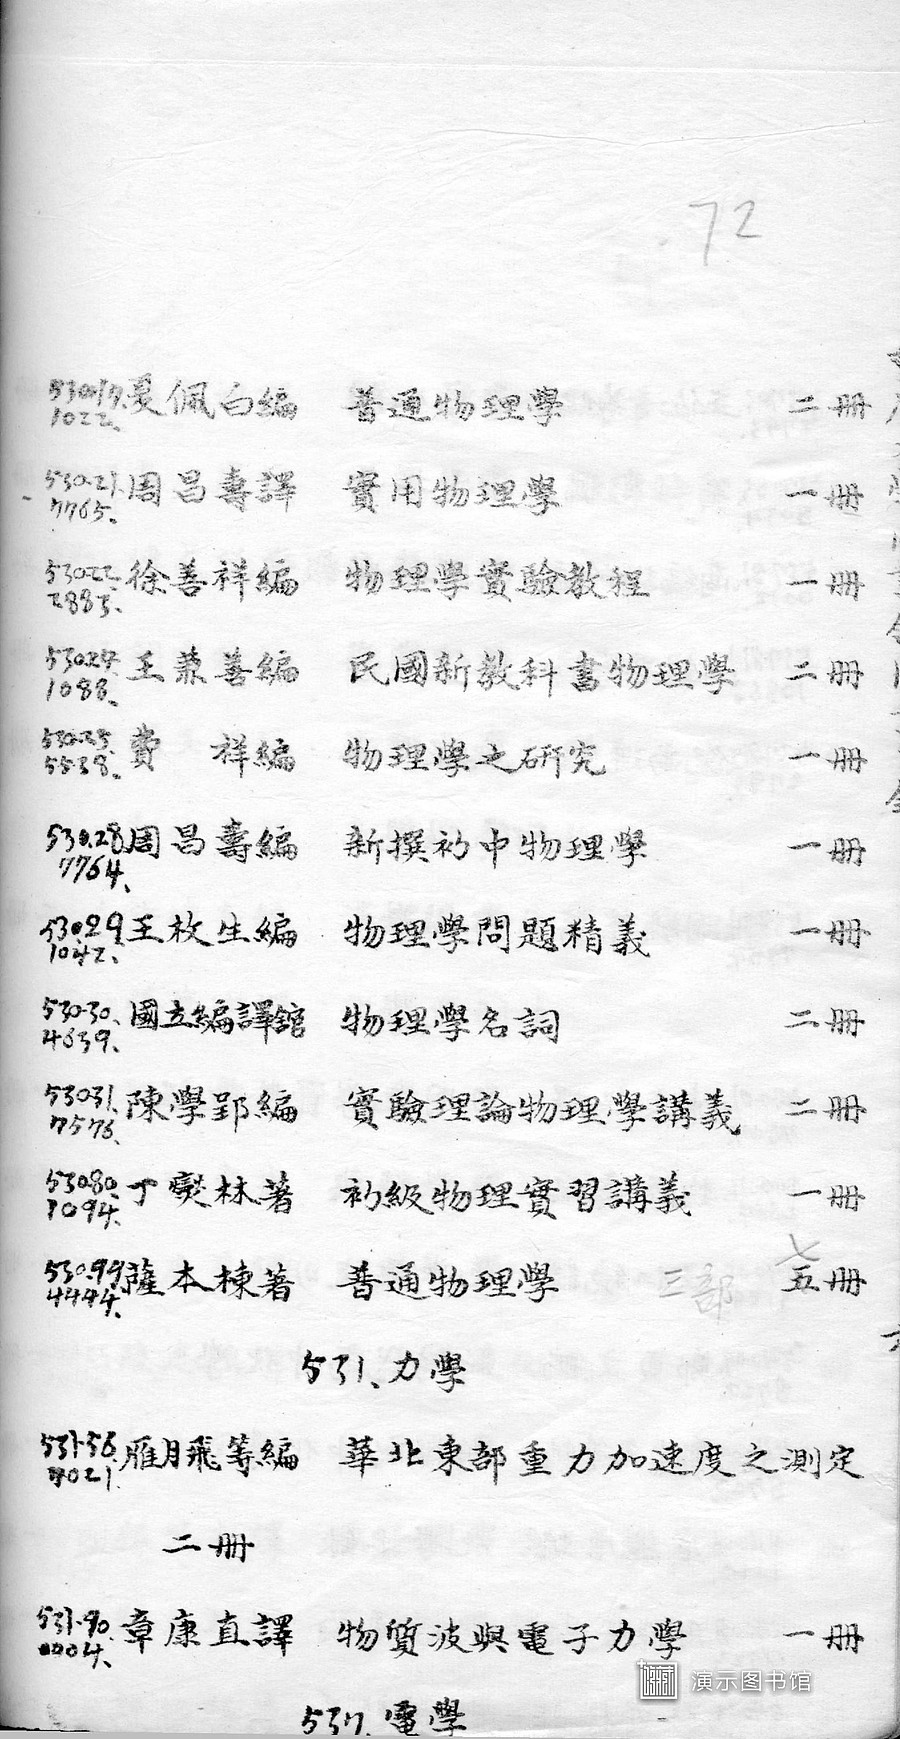 72
530.17. 夏佩白編 普通物理學 二冊
1022、
530.21. 周昌壽譯 實用物理學 一冊
7765.
530.22. 徐善祥編 物理學實驗教程 一冊
2883、
530.24. 王兼善編 民國新教科書物理學 二冊
1088.
530.25. 費祥編 物理學之研究 一冊
5538、
530.28 周昌壽編 新撰初中物理學 一冊
7764、
530.29 王枚生編 物理學問題精義 一冊
1042、
530.30、 國立編譯館 物理學名詞 二冊
4639、
530.31. 陳學郢編 實驗理論物理學講義 二冊
7576.
530.80. 丁燮林著 初級物理實習講義 一冊
1094.
530.99 薩本棟著 普通物理學 三部 五冊 七
4444、
531、力學
531.56. 雁月飛等編 華北東部重力加速度之測定
7021.
二冊
531.90. 章康直譯 物質波與電子力學 一冊
0004.
537. 電學
演示图书馆